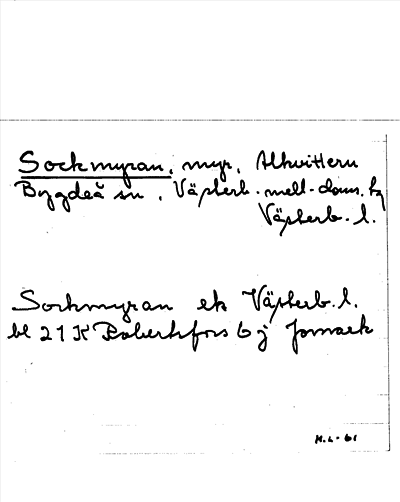 Sockmyran, myr, Alkvittern
Bygdeå sn, Västerb. mell. doms. hg
Västerb. l.
Sockmyran ek Västerb. l.
bl 21 K Robertsfors 6 j
M.L-61